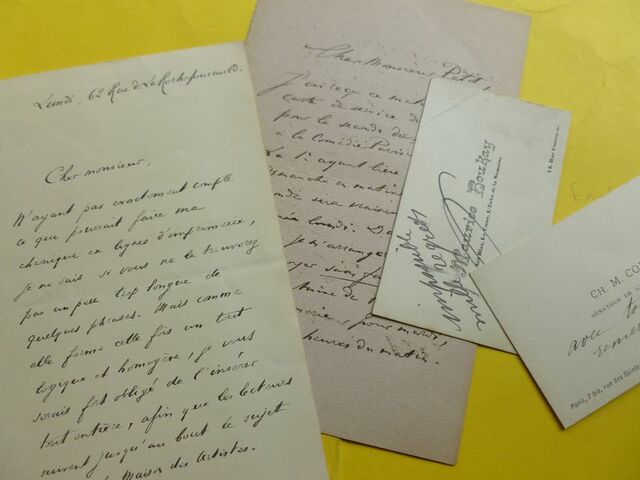 Lundi, 62 Rue de La Rochefoucauld.
Cher monsieur,
N'ayant pas exactement compte
ce que pourrait faire ma
chronique en lignes d'imprimerie,
je ne sais si vous ne la trouverez
pas un peu trop longue de
quelques phrases. Mais comme
elle forme cette fois un tout
logique et homogène, je vous
serais fort obligé de l'insérer
tout entière, afin que les lecteurs
suivent jusqu'au bout le sujet
Maison des Artistes.
Cher Monsieur Petit,
J'ai reçu ce mat
carte de service du
pour la seconde de
à la Comédie Paris
La 1re ayant lieu
dimanche en matin
lundi. D
je m'arrange
pour mardi,
heures du matin.
impossible
regrets
mille
Maurice Boukay
CH. M. CO
SÉNATEUR DE L
avec to
remer
Paris, 7 bis, rue des Saints